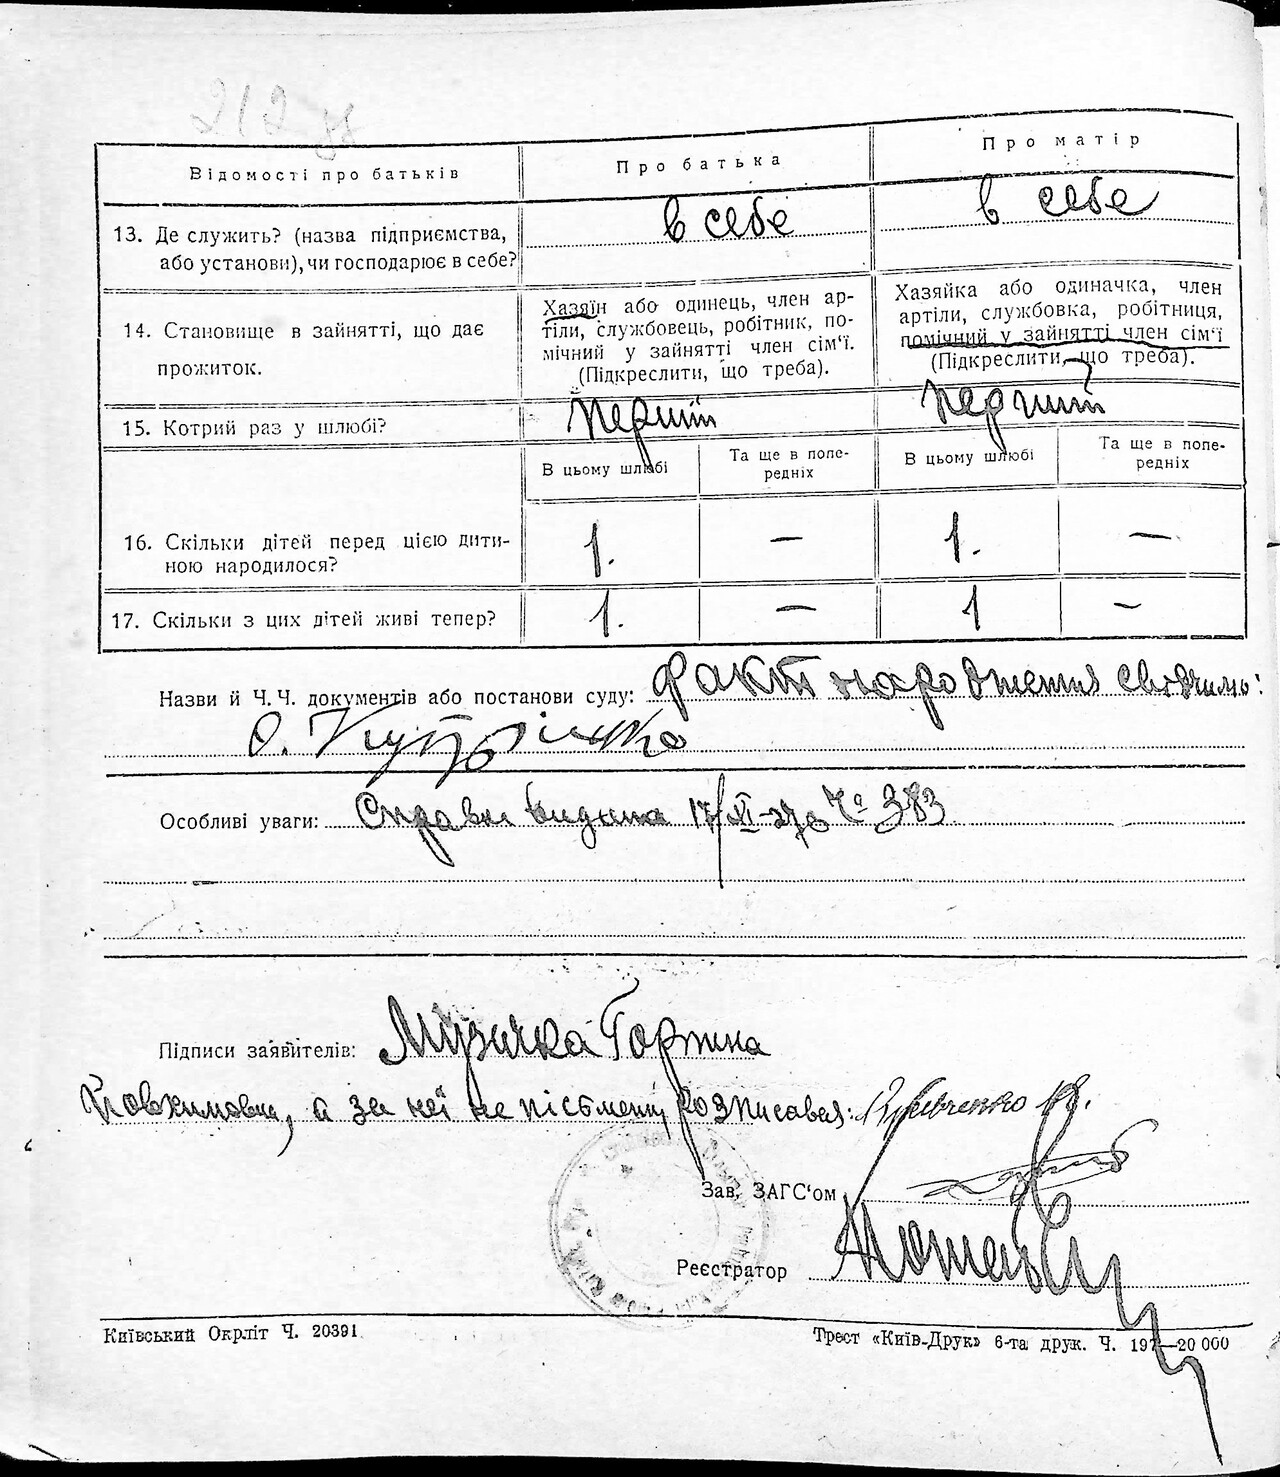 212 зв
Відомості про батьків
Про батька
Про матір
13. Де служить? (назва підприємства,
або установи), чи господарює в себе?
в себе
в себе
14. Становище в зайнятті, що дає
прожиток.
Хазяїн або одинець, член ар-
тіли, службовець, робітник, по-
мічний у зайнятті член сім'ї.
(Підкреслити, що треба).
Хазяйка або одиначка, член
артіли, службовка, робітниця,
помічний у зайнятті член сім'ї
(Підкреслити, що треба).
15. Котрий раз у шлюбі?
перший
перший
В цьому шлюбі
Та ще в попе-
редніх
В цьому шлюбі
Та ще в попе-
редніх
16. Скільки дітей перед цією дити-
ною народилося?
1. — 1. —
17. Скільки з цих дітей живі тепер?
1. — 1 —
Назви й Ч.Ч. документів або постанови суду: факт народження свідчить:
О.
Особливі уваги: Справка видана 17/XI-27р Ча 383
Підписи заявителів: Музичка Горпина
Йовхимовна, а за неї не пісьменну розписався: Шевченко
Зав. ЗАГС'ом
Реєстратор
Київський Окрліт Ч. 20391.
Трест «Київ-Друк» 6-та друк. Ч. 197—20 000